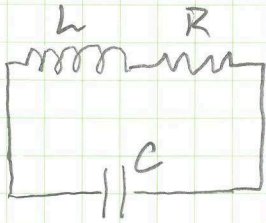 L R
C